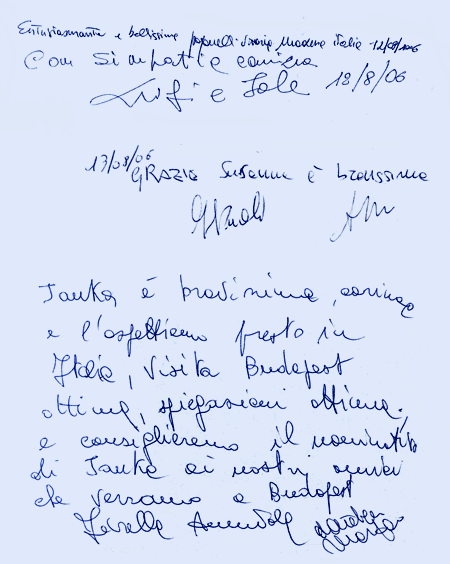 Entusiasmante e bellissima Modena Italia 12/08/2006
Con Simpatia
Luigi e Iole 18/8/06
13/08/06
GRAZIE Susanna è bravissima
Janka è bravissima, carina
e l'aspettiamo presto in
Italia, visita Budapest
ottima, spiegazioni ottime,
e consiglieremo il nominativo
di Janka ai nostri amici
che verranno a Budapest